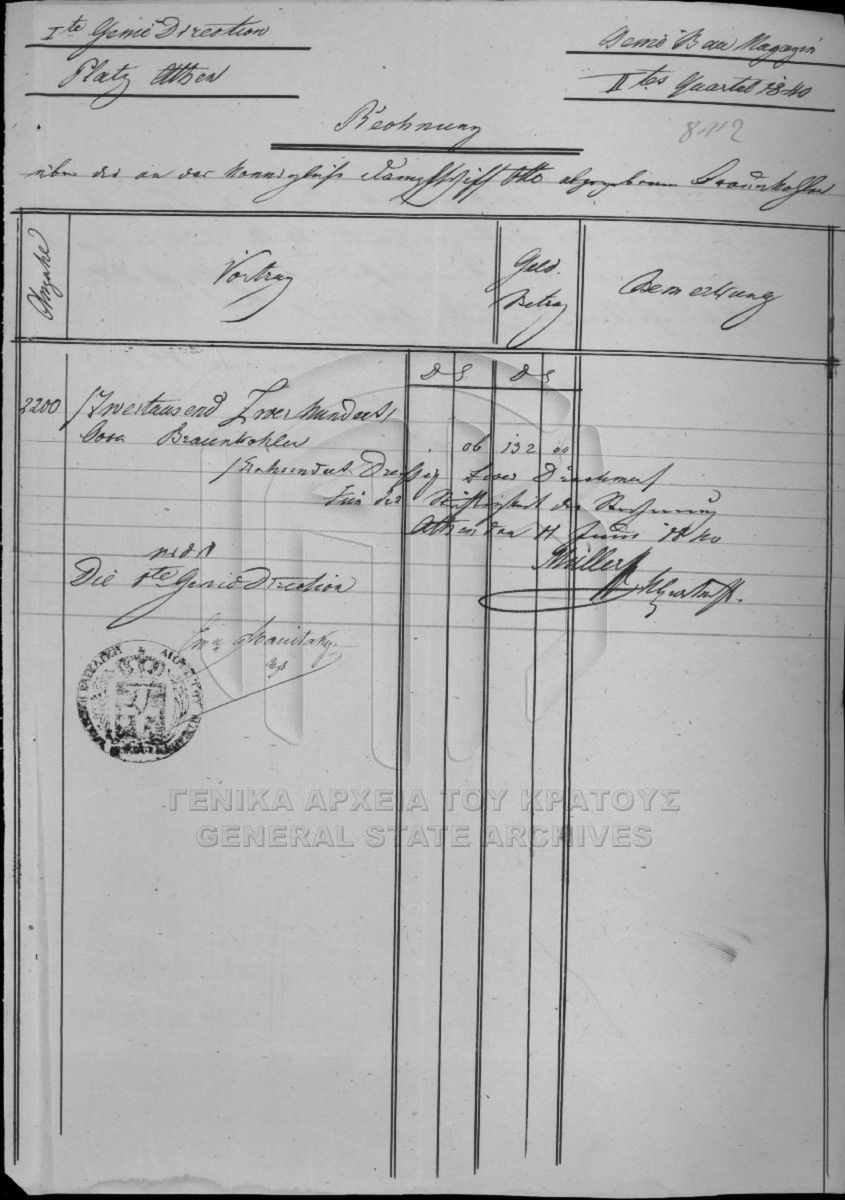 Ite Genie Direction
Platz Athen
Genie Bau Magazin
IItes Quartal 1840
8112
Rechnung
über die an das königliche Dampfschiff Otto abgegebenen Braunkohlen
Anzahl
Vortrag
Geld Betrag
Bemerkung
D L D L
2200 /Zweitausend Zwei hundert/
Braunkohlen 06 132 00
/Einhundert Dreißig Zwei Drachmen/
Für die Richtigkeit der Rechnung
Athen den 11 Juni 1840
Müller
vidit
Die Ite Genie Direction
ΓΕΝΙΚΑ ΑΡΧΕΙΑ ΤΟΥ ΚΡΑΤΟΥΣ
GENERAL STATE ARCHIVES